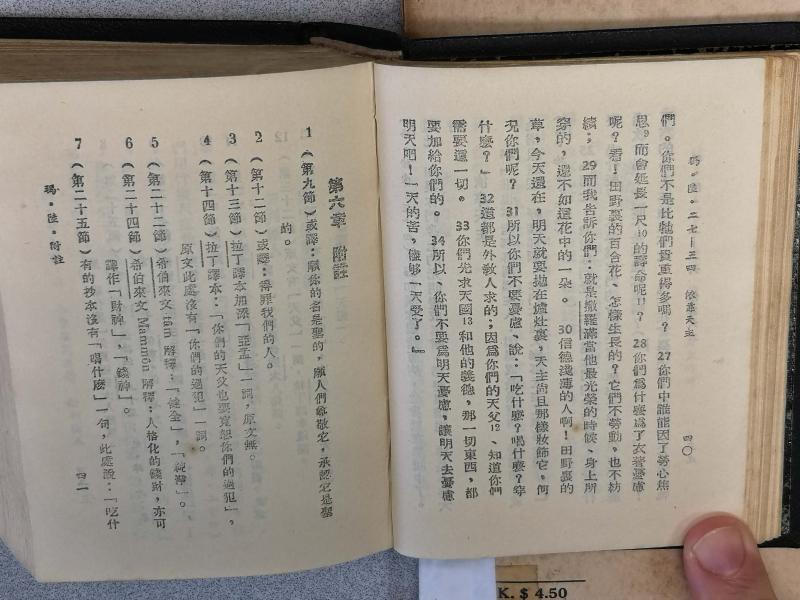 瑪·陸·二七—三四　依靠天主　四〇
們。你們不是比牠們貴重得多嗎？ 27你們中誰能因了勞心焦
思9而會延長一尺10的壽命呢11？ 28你們爲什麼爲了衣着憂慮
呢？看！田野裏的百合花、怎樣生長的？它們不勞動，也不紡
績； 29而我告訴你們：就是撒羅滿當他最光榮的時候、身上所
穿的，還不如這花中的一朵。 30信德淺薄的人啊！田野裏的
草，今天還在，明天就要拋在爐灶裏，天主尚且那樣妝飾它，何
況你們呢？ 31所以你們不要憂慮、說：「吃什麼？喝什麼？穿
什麼？」 32這都是外教人求的；因爲你們的天父12、知道你們
需要這一切。 33你們先求天國13和他的義德，那一切東西，都
要加給你們的。 34所以、你們不要爲明天憂慮，讓明天去憂慮
明天吧！一天的苦，儘够一天受了。』
第六章　附註
1（第九節）或譯：願你的名是聖的，願人們尊敬它，承認它是聖
的。
2（第十二節）或譯：得罪我們的人。
3（第十三節）拉丁譯本加添「亞孟」一詞，原文無。
4（第十四節）拉丁譯本：「你們的天父也要寬恕你們的過犯」，
原文此處沒有「你們的過犯」一詞。
5（第二十二節）希伯來文 tâm 解釋：「健全」，「純潔」。
6（第二十四節）希伯來文 Mâmmôn 解釋：人格化的錢財，亦可
譯作「財神」，「錢神」。
7（第二十五節）有的抄本沒有「喝什麼」一句，此處說：「吃什
瑪·陸·附註　四一
K. $ 4.50